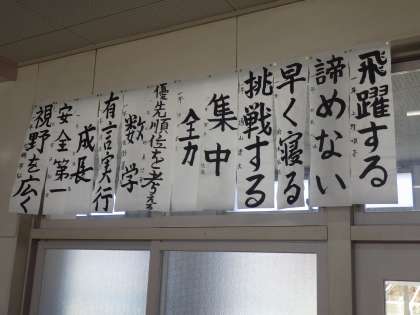 飛躍する
諦めない
早く寝る
挑戦する
集中
全力
優先順位を考える
数学
有言実行
成長
安全第一
視野を広く